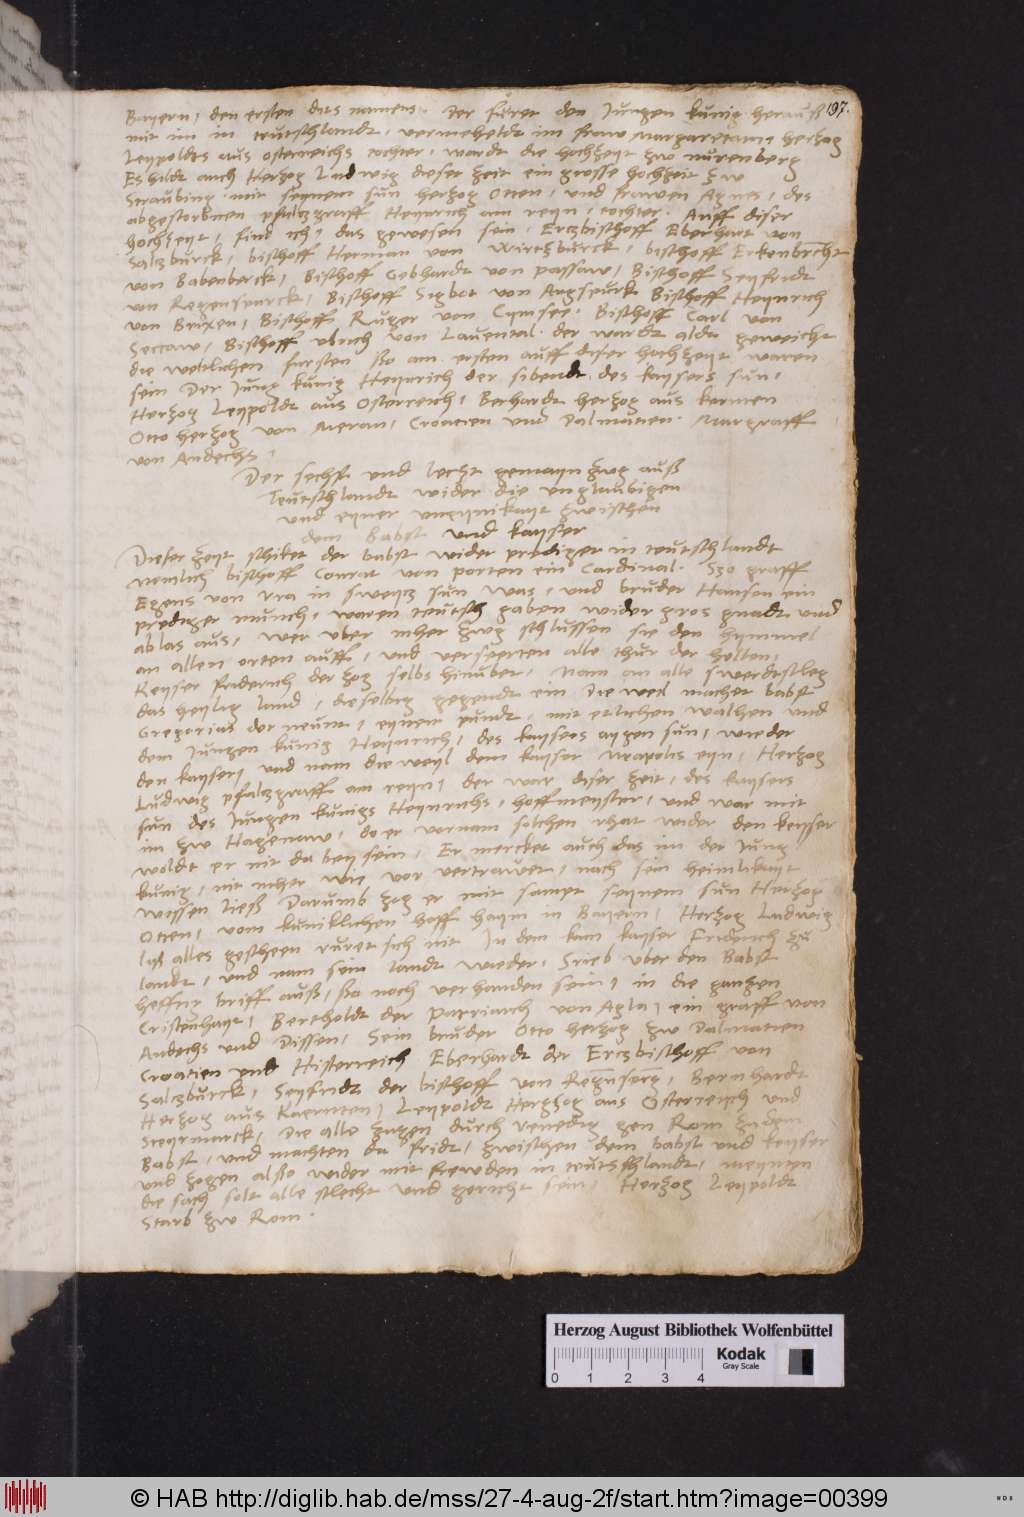 197.
Bayern, den ersten dits namens. Der füret den Jungen künig herauß
mit im in teutschlandt, vermeheldt im fraw Margaretam, herzog
Leypoldts aus osterreichs tochter, wardt die hochzeyt zw nürenberg
Es hildt auch Herzog Ludwig dieser zeit ein grosse hochzeit zw
Straubing mit seynem sun herzog Otten, und frawen Agnes, des
abgestorbnen pfaltzgraff Heynrich am reyn, tochter. Auff diser
hochzeyt, find ich, das gewesen sein, Ertzbisthoff Eberhart von
Saltzburck, bisthoff Herman von Wirtzburck, bisthoff Erkenbrecht
von Babenberck, Bisthoff Gebhardt von passaw, Bisthoff Seyfridt
von Regenspurck, Bisthoff Sigbot von Augspurk Bisthoff Heynrich
von Brixen, Bisthoff Ruger von Cymsee, Bisthoff Carl von
Seccaw, Bisthoff ulrich von Lavental. der wardt aldo geweicht
die weltlichen fursten ßo am ersten auff diser hochzeyt waren
sein Der Jung künig Heynrich der sibendt des kaysers sun,
Herzog Leypoldt aus Osterreich, Berhardt herzog aus kernten
Otto herzog von Meran, Croatien und Dalmatien. Margraff
von Andechs,
Der sechst und lecht gemayn zwg auß
Teutschlandt wider die unglaubigen
und eyner unaynikayt zwischen
dem Babst und kayser
Dieser zeyt schiket der babst wider prediger in teutschlandt
nemlich bisthoff Conrat von porten ein Cardinal. Szo graff
Egens von vra in sweytz sun was, und bruder Hanson ein
prediger munch, waren teutsch gaben wider gros gnadt und
ablas aus, wer uber mher zwg schlussen sie den hymmel
an allen orten auff, und versperten alle thur der hellen,
Keyser friderich der zog selbs hinuber, Nam an alle swerdtstleg
das heylig land, dieselbig gegendt ein Die weil machet babst
Gregorius der neunt, eynen pundt, mit etlichen walhen und
dem Jungen künig Heynrich, des kaysers aygen sun, wieder
den kayser, und nam die weyl dem kayser Neapolis eyn, Herzog
Ludwig pfaltzgraff am reyn, der war diser zeit, des kaysers
sun des Jungen künigs Heynrichs, hoffmeyster, und war mit
im zw Hagenaw, do er vornam solchen rhat wider den keyser
woldt er nit da bey sein, Er mercket auch das im der Jung
kunig, nit mher wie vor vertrawet, noch sein heimlikayt
wessen ließ Darumb zog er mit sampt seynem sun Herzog
Otten, vom kuniklichen hoff haym in Bayern, Herzog Ludwig
liß alles gescheen ruret sich nit In dem kam kayser Friderich zu
landt, und nam sein landt wieder, Srieb uber den Babst
hefftig briff auß, ßo noch verhanden sein, in die gantzen
Cristenhayt, Bertholdt der Patriarch von Agla, ein graff von
Andechs und Dissen, Sein bruder Otto herzog zw Dalmatien
Croatien und Histerreich Eberhardt der Ertzbisthoff von
Saltzburck, Seyfridt der bisthoff von Regenserg, Bernhardt
Herzog aus Kaernten, Leypoldt Hergzog aus Osterreych und
Steyrmarck, Die alle zugen durch venedig gen Rom zu dem
Babst, und machten da fridt, zwischen dem babst und keyser
und zogen alßo wider mit frewden in teutschlandt, meynten
die sach solt alle schlecht und gericht sein, Herzog Leypoldt
Starb zw Rom.
Herzog August Bibliothek Wolfenbüttel
Kodak
Gray Scale
0 1 2 3 4
© HAB http://diglib.hab.de/mss/27-4-aug-2f/start.htm?image=00399